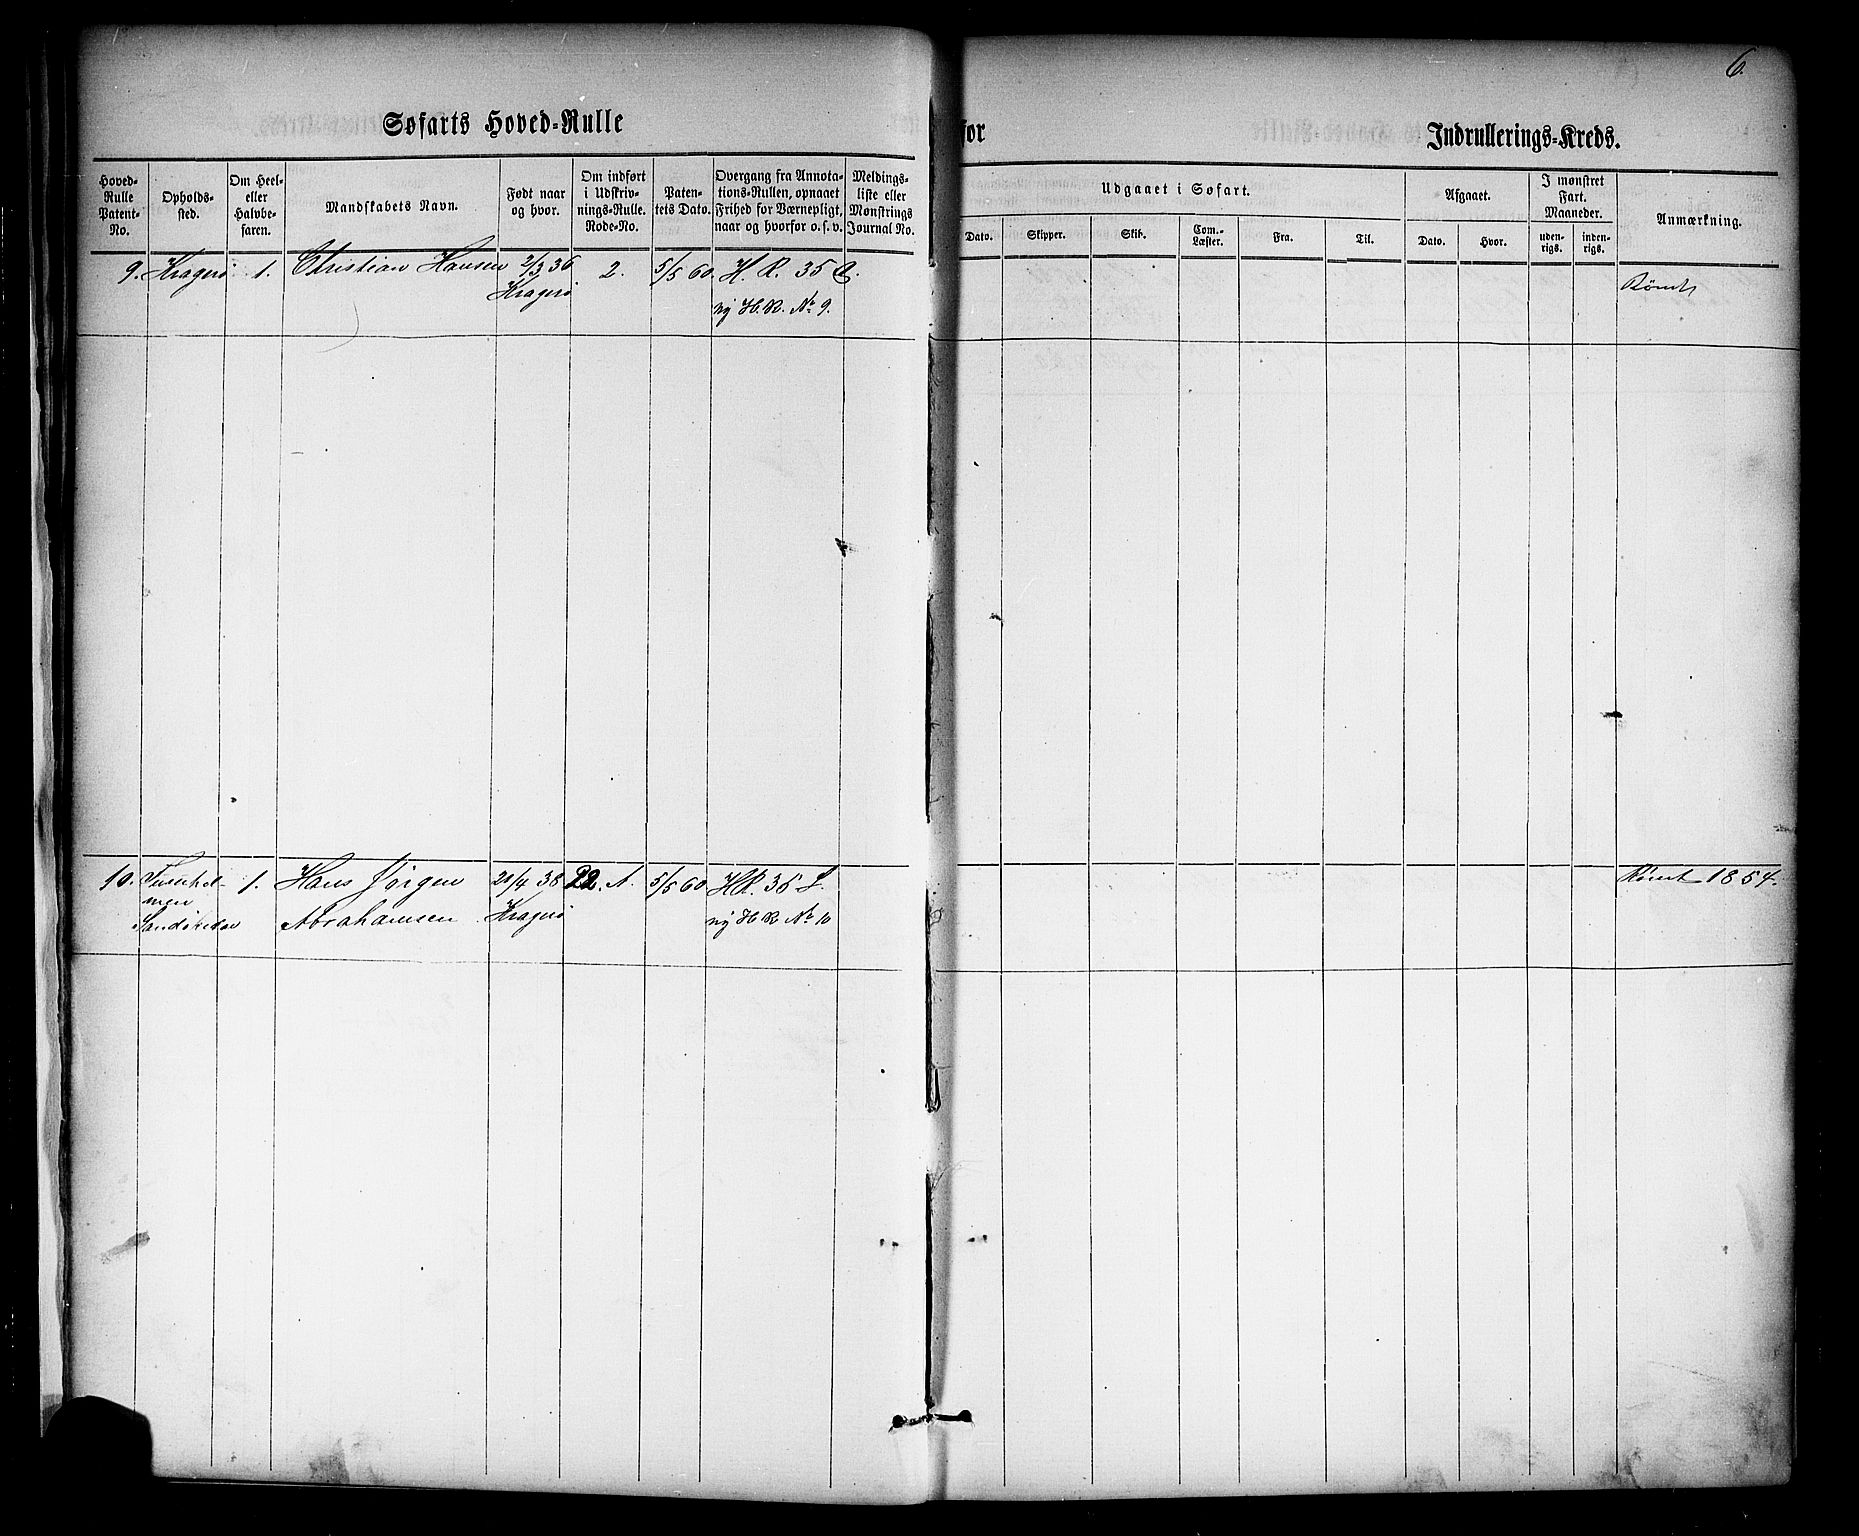 6.
Søfarts Hoved-Rulle
for
Indrullerings-Kreds.
Hoved-
Rulle
Patent-
No.
Opholds-
sted.
Om Heel-
eller
Halvbe-
faren.
Mandskabets Navn.
Født naar
og hvor.
Om indført
i Udskriv-
nings-Rulle.
Rode-No.
Paten-
tets Dato.
Overgang fra Annota-
tions-Rullen, opnaaet
Frihed for Værnepligt,
naar og hvorfor o. s. v.
Meldings-
liste eller
Mønstrings
Journal No.
Udgaaet i Søfart.
Dato.
Skipper.
Skib.
Com.-
Læster.
Fra.
Til.
Afgaaet.
Dato.
Hvor.
I mønstret
Fart.
Maaneder.
uden-
rigs.
inden-
rigs.
Anmærkning.
9. Kragerø 1. Christian Hansen 2/3 36 2. 5/5 60. H. R. 35 Rømt
Kragerø ny H. R. No 9.
10. 1. Hans Jørgen 20/4 38 22. A. 5/5 60 HR. 36 L. Rømt 1854.
Sandøkedal Abrahamsen Kragerø ny H R No 10